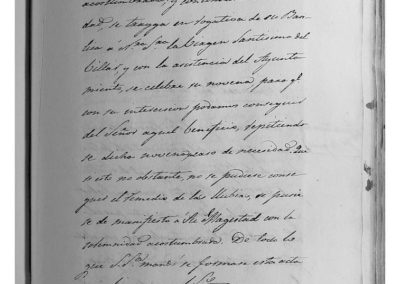 dad, se trayga en rogativa de su Parr
lica a Ntra. Sra. la Virgen Santisima del
Villar, y con la asistencia del Ayunta
miento, se celebre su novena para qe.
con su intercesion podamos conseguir
del Señor aquel beneficio, repitiendo
se dicho novenario caso de necesidad. Que
si esto no obstante, no se pudiese conse
guir el remedio de las llubias, se pusie
se de manifiesto a Su Magestad con la
solemnidad acostumbrada. De todo lo
que S. Sria. mandó se formase esta acta